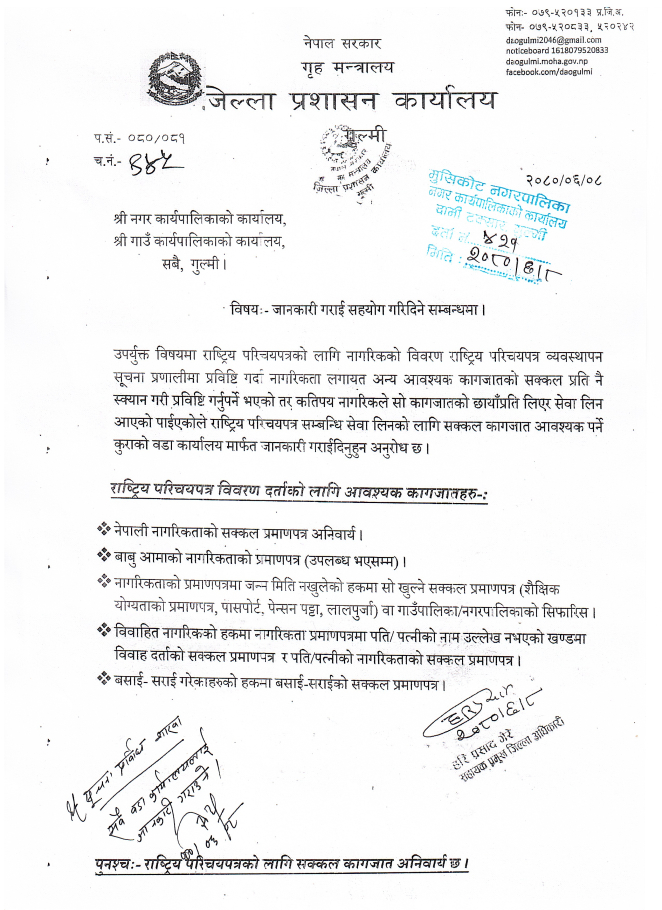 फोन:- ०७९-५२०१३३ प्र.जि.अ.
फोन- ०७९-५२०८३३, ५२०२४२
daogulmi2046@gmail.com
noticeboard 1618079520833
daogulmi.moha.gov.np
facebook.com/daogulmi
नेपाल सरकार
गृह मन्त्रालय
जिल्ला प्रशासन कार्यालय
गुल्मी
प.सं.- ०८०/०८१
च.नं.- ३४५
जिल्ला प्रशासन कार्यालय
गुल्मी
२०८०/०६/०८
मुसिकोट नगरपालिका
नगर कार्यपालिकाको कार्यालय
वामी टक्सार, गुल्मी
दर्ता नं. ४२१
मिति : २०८०/६/८
श्री नगर कार्यपालिकाको कार्यालय,
श्री गाउँ कार्यपालिकाको कार्यालय,
सबै, गुल्मी ।
विषयः- जानकारी गराई सहयोग गरिदिने सम्बन्धमा ।
उपर्युक्त विषयमा राष्ट्रिय परिचयपत्रको लागि नागरिकको विवरण राष्ट्रिय परिचयपत्र व्यवस्थापन
सूचना प्रणालीमा प्रविष्टि गर्दा नागरिकता लगायत अन्य आवश्यक कागजातको सक्कल प्रति नै
स्क्यान गरी प्रविष्टि गर्नुपर्ने भएको तर कतिपय नागरिकले सो कागजातको छायाँप्रति लिएर सेवा लिन
आएको पाईएकोले राष्ट्रिय परिचयपत्र सम्बन्धि सेवा लिनको लागि सक्कल कागजात आवश्यक पर्ने
कुराको वडा कार्यालय मार्फत जानकारी गराईदिनुहुन अनुरोध छ ।
राष्ट्रिय परिचयपत्र विवरण दर्ताको लागि आवश्यक कागजातहरु-:
❖ नेपाली नागरिकताको सक्कल प्रमाणपत्र अनिवार्य ।
❖ बाबु आमाको नागरिकताको प्रमाणपत्र (उपलब्ध भएसम्म) ।
❖ नागरिकताको प्रमाणपत्रमा जन्म मिति नखुलेको हकमा सो खुल्ने सक्कल प्रमाणपत्र (शैक्षिक
योग्यताको प्रमाणपत्र, पासपोर्ट, पेन्सन पट्टा, लालपुर्जा) वा गाउँपालिका/नगरपालिकाको सिफारिस ।
❖ विवाहित नागरिकको हकमा नागरिकता प्रमाणपत्रमा पति/ पत्नीको नाम उल्लेख नभएको खण्डमा
विवाह दर्ताको सक्कल प्रमाणपत्र र पति/पत्नीको नागरिकताको सक्कल प्रमाणपत्र ।
❖ बसाई- सराई गरेकाहरुको हकमा बसाई-सराईको सक्कल प्रमाणपत्र ।
२०८०/६/८
हरि प्रसाद गैरे
सहायक प्रमुख जिल्ला अधिकारी
श्री सूचना प्रविधि शाखा
सबै वडा कार्यालयलाई
जानकारी गराउने ।
पुनश्चः- राष्ट्रिय परिचयपत्रको लागि सक्कल कागजात अनिवार्य छ ।